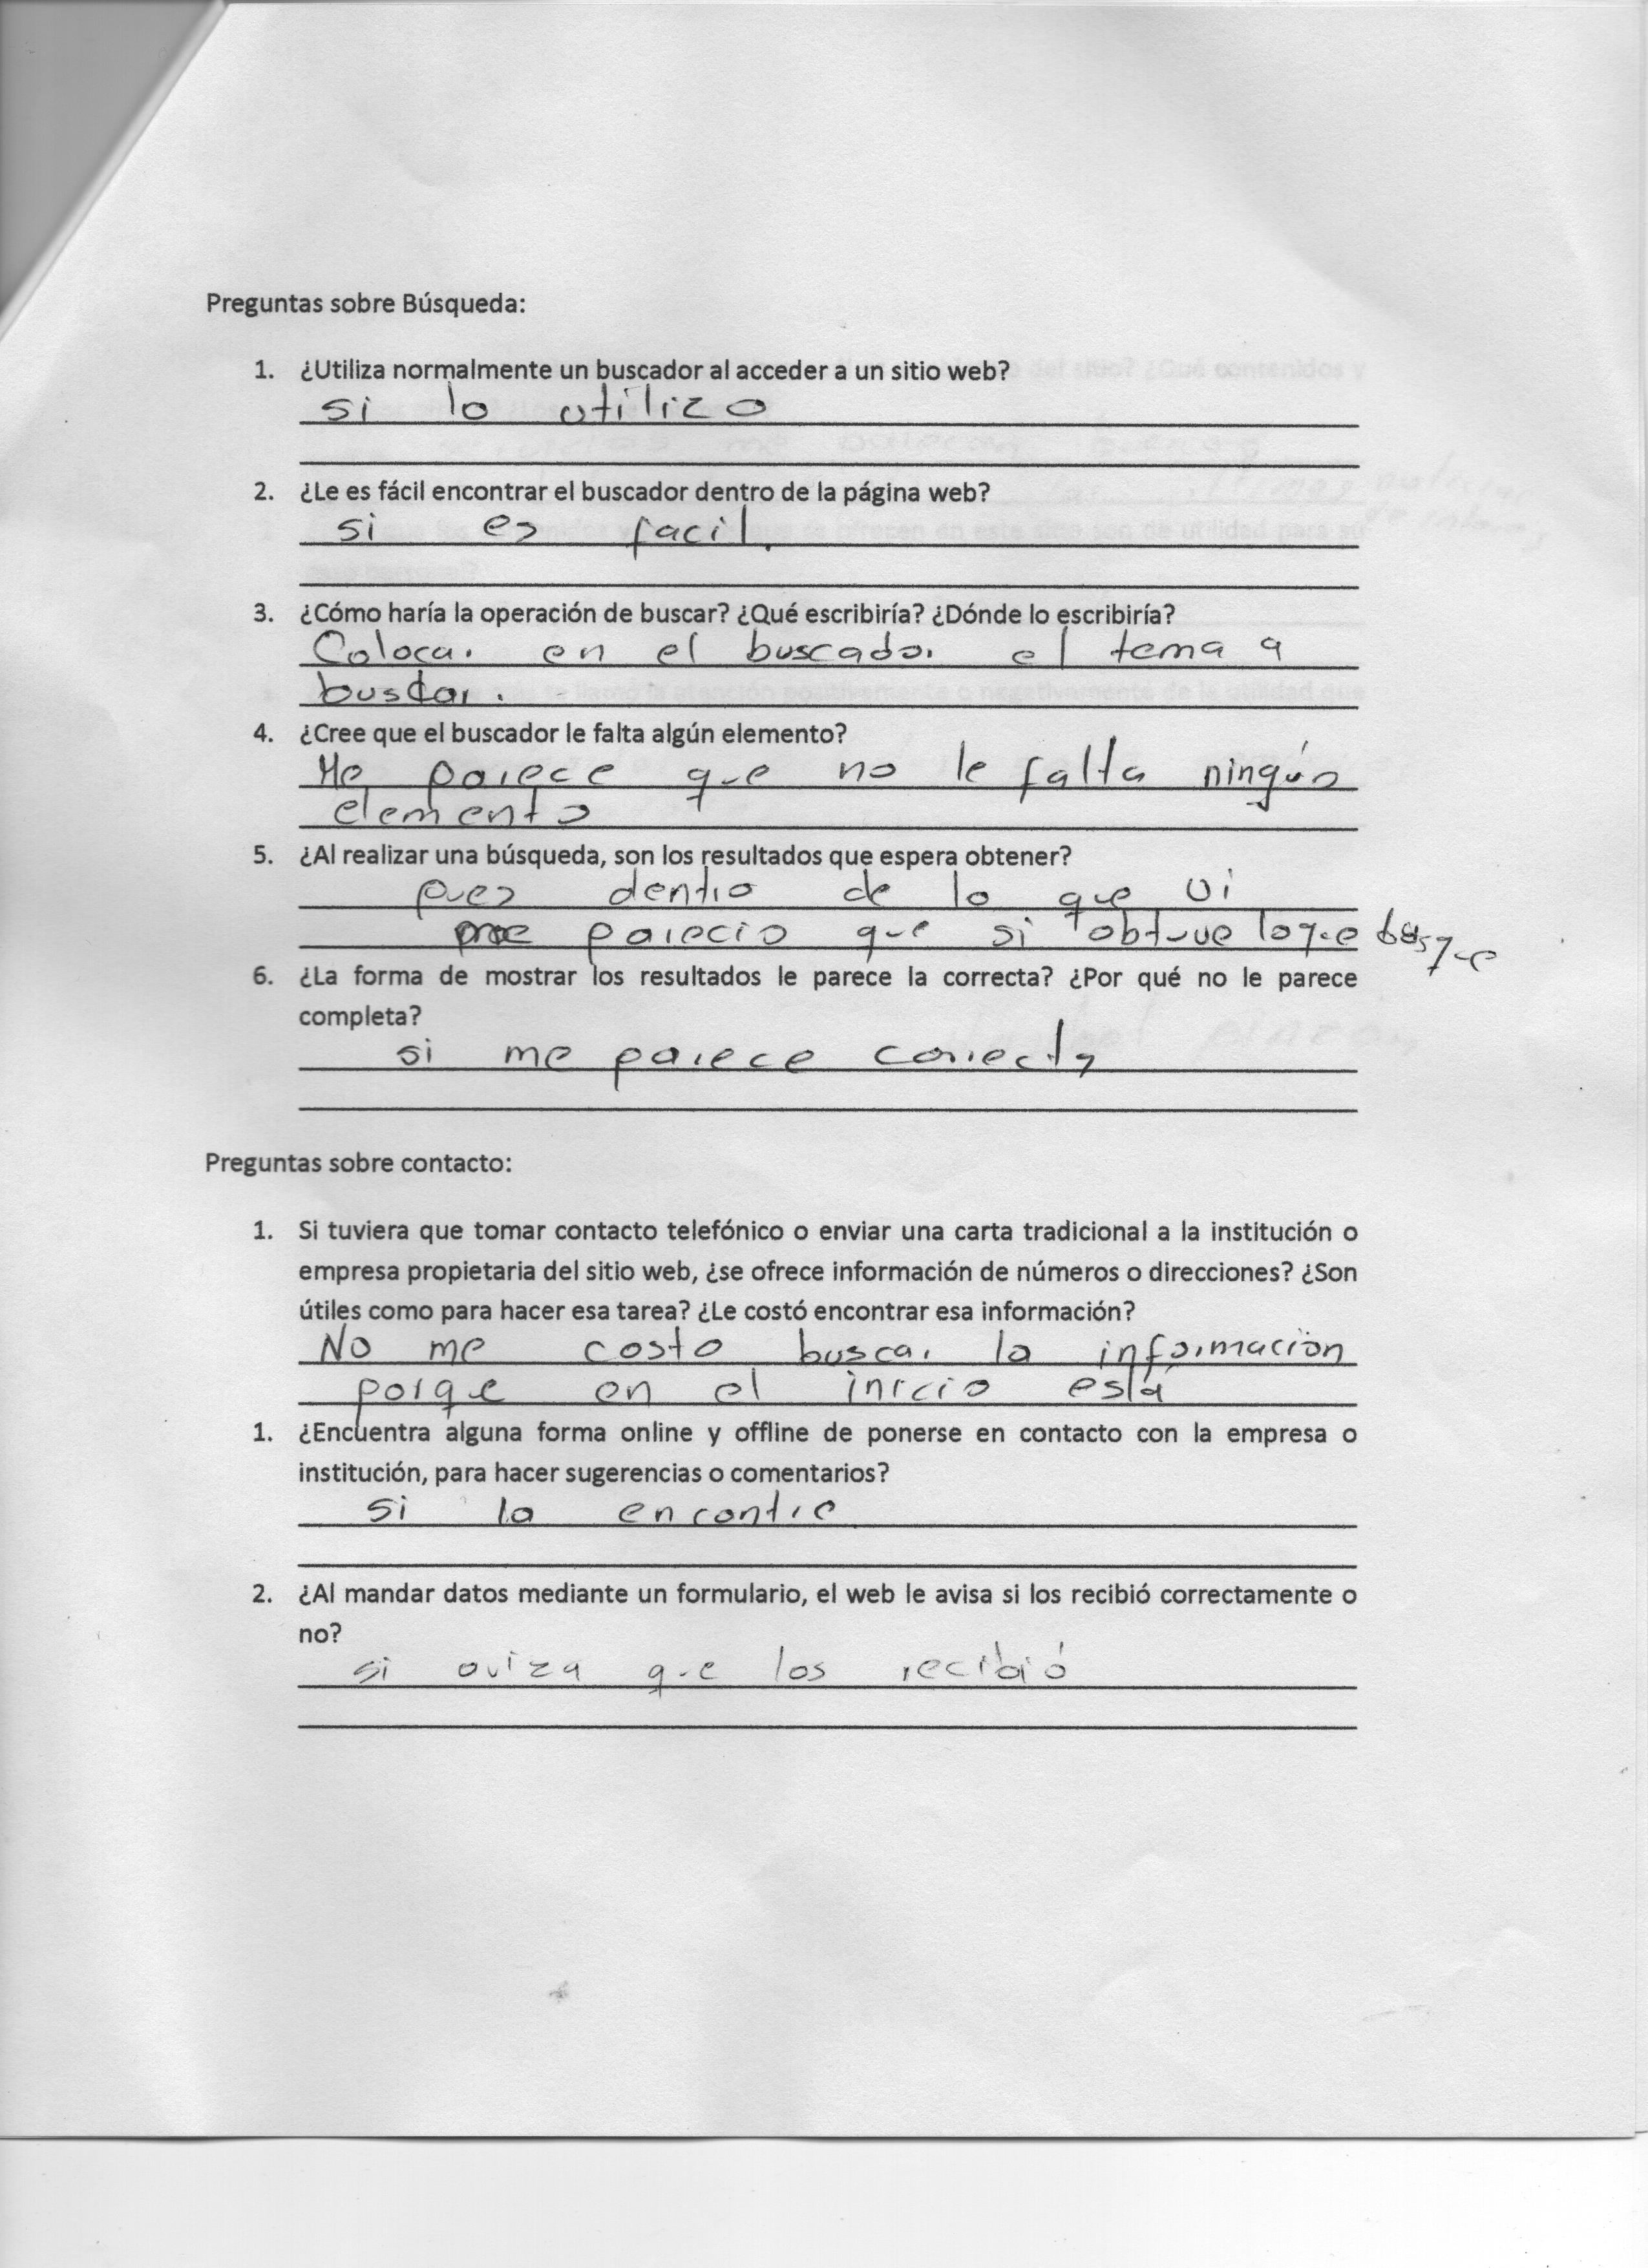 Preguntas sobre Búsqueda:
1. ¿Utiliza normalmente un buscador al acceder a un sitio web?
si lo utilizo
2. ¿Le es fácil encontrar el buscador dentro de la página web?
si es facil.
3. ¿Cómo haría la operación de buscar? ¿Qué escribiría? ¿Dónde lo escribiría?
Colocar en el buscador el tema a
buscar.
4. ¿Cree que el buscador le falta algún elemento?
Me parece que no le falta ningún
elemento
5. ¿Al realizar una búsqueda, son los resultados que espera obtener?
pues dentro de lo que vi
me parecio que si obtuve lo que busque
6. ¿La forma de mostrar los resultados le parece la correcta? ¿Por qué no le parece
completa?
si me parece correcta
Preguntas sobre contacto:
1. Si tuviera que tomar contacto telefónico o enviar una carta tradicional a la institución o
empresa propietaria del sitio web, ¿se ofrece información de números o direcciones? ¿Son
útiles como para hacer esa tarea? ¿Le costó encontrar esa información?
No me costo buscar la información
porque en el inicio está
1. ¿Encuentra alguna forma online y offline de ponerse en contacto con la empresa o
institución, para hacer sugerencias o comentarios?
si la encontre
2. ¿Al mandar datos mediante un formulario, el web le avisa si los recibió correctamente o
no?
si aviza que los recibió